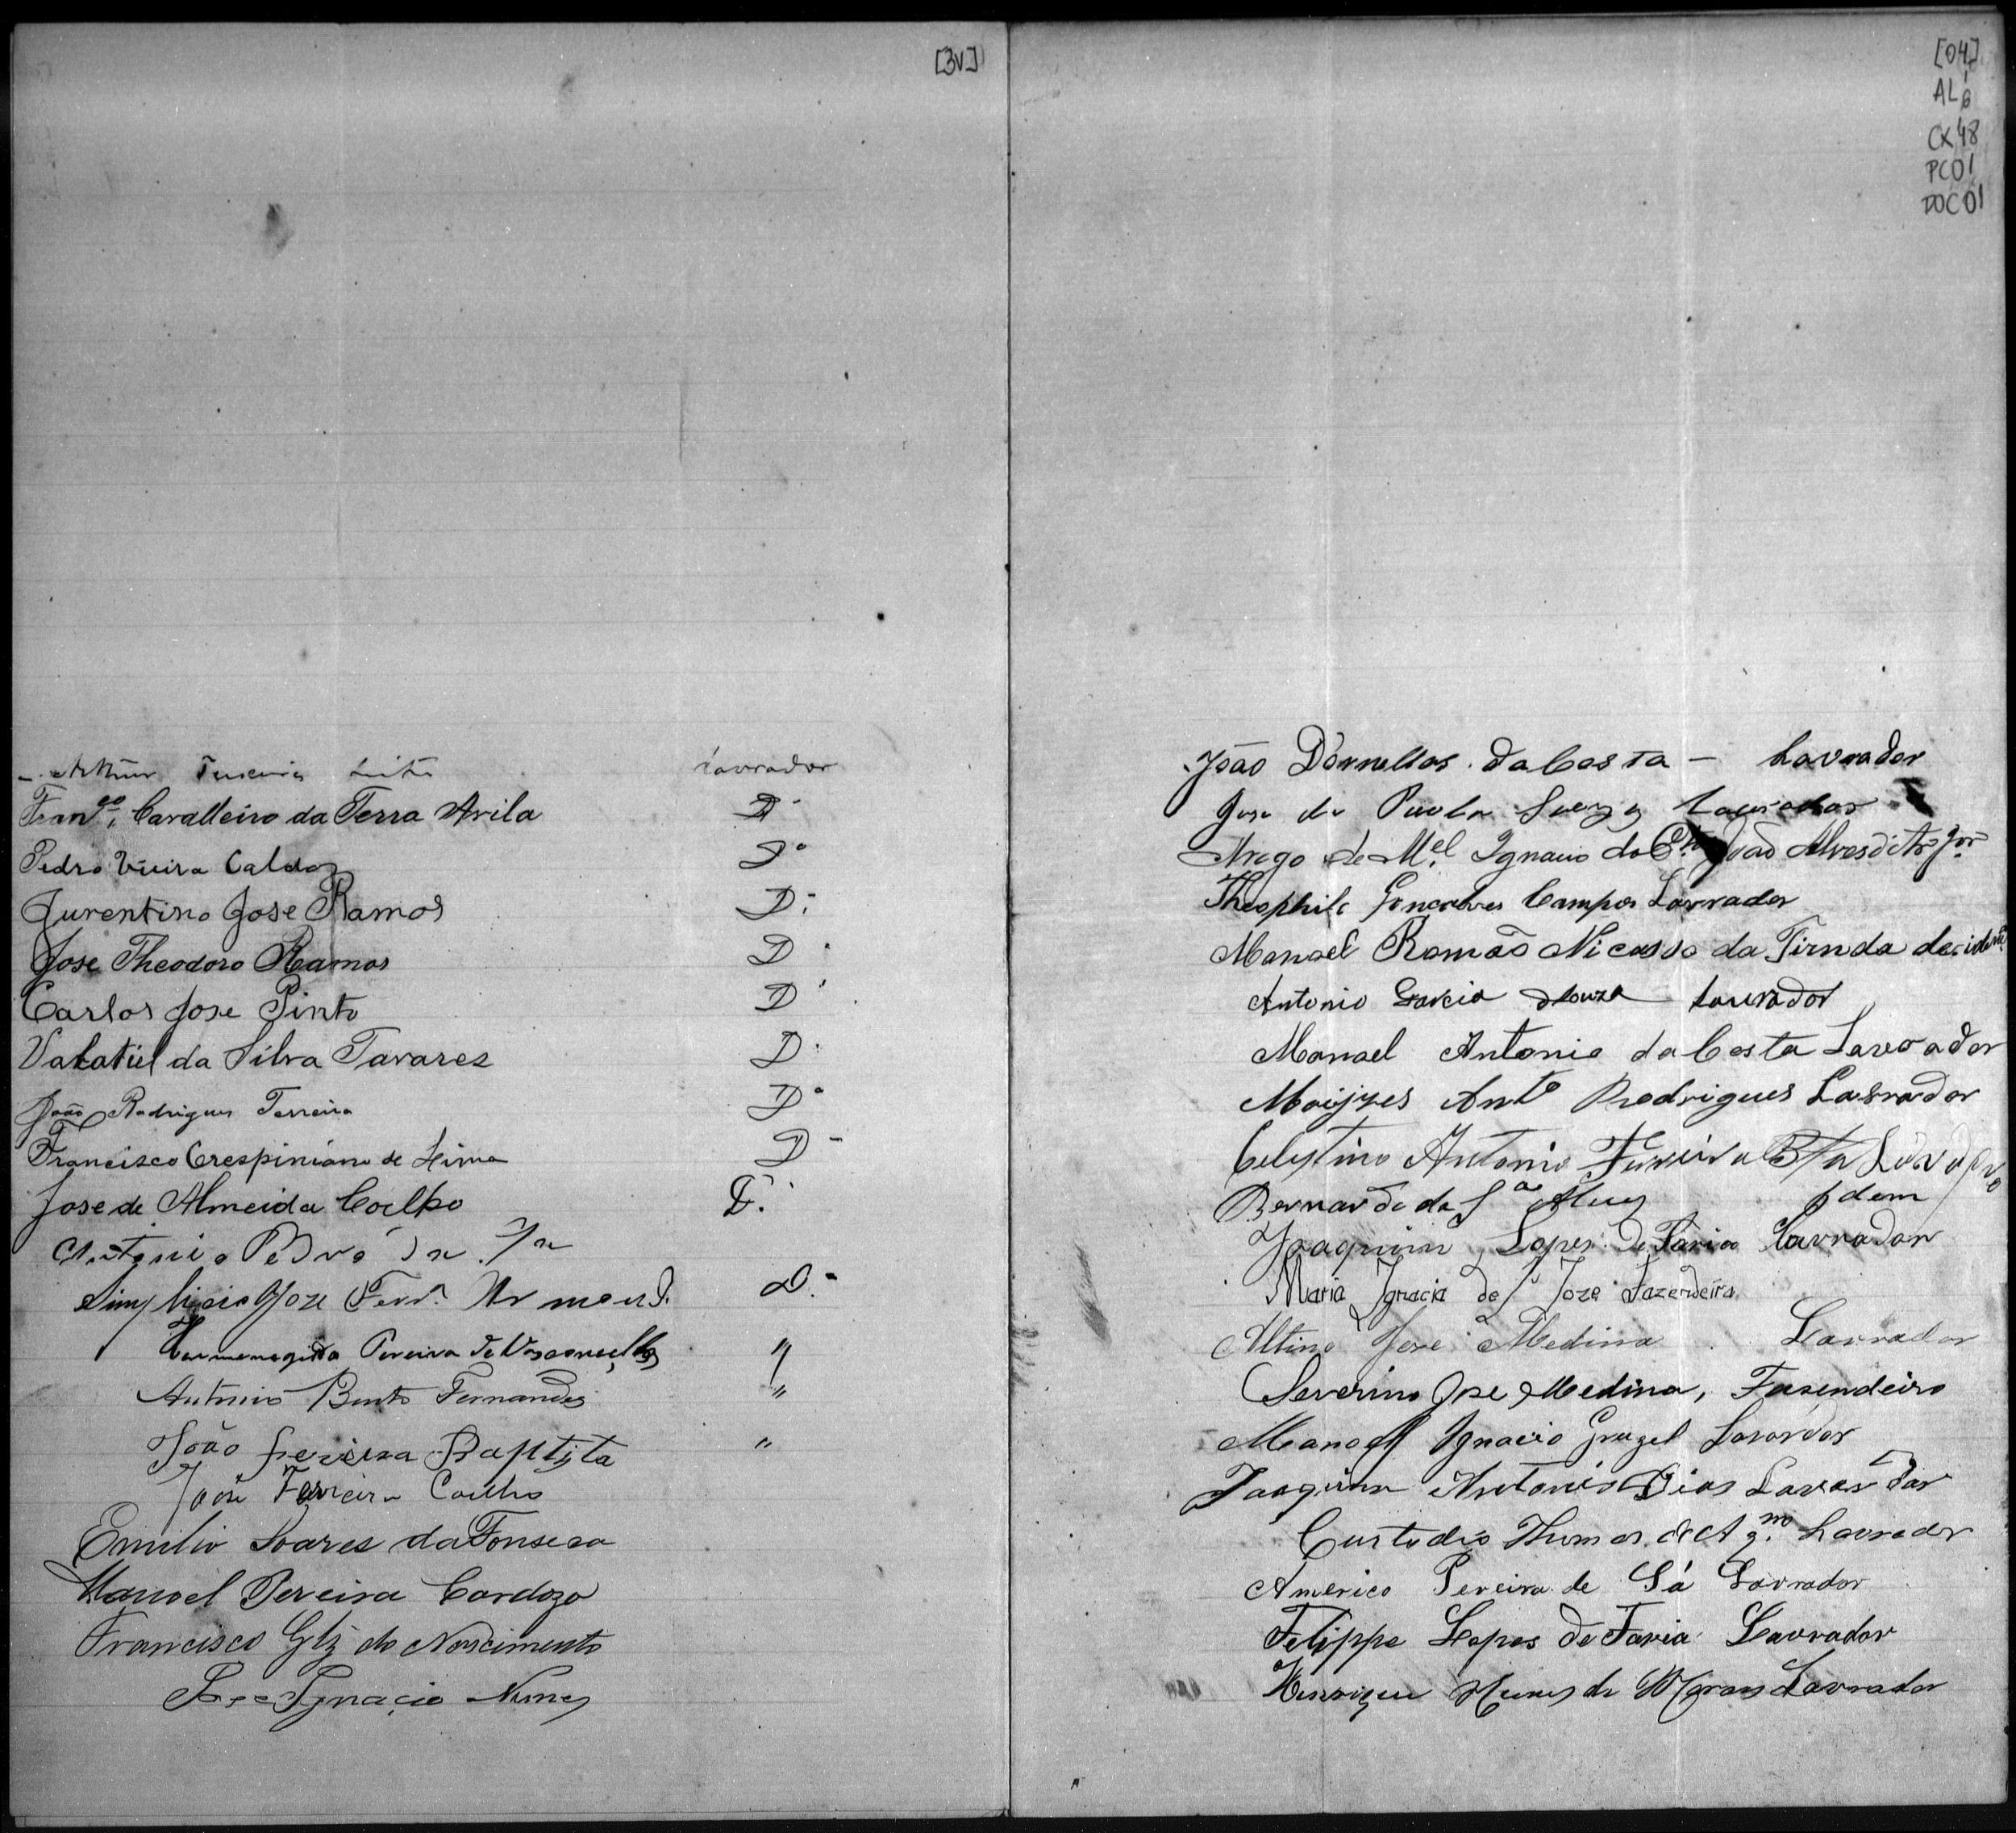 [3V]
Arthur Teixeira Leite Lavrador
Franco. Cavalleiro da Terra Avila Do
Pedro Vieira Caldas Do
Jurentino Jose Ramos Do
Jose Theodoro Ramos Do
Carlos Jose Pinto Do
Valatiel da Silva Tavares Do
João Rodrigues Ferreira Do
Francisco Crespiniano de Lima Do
Jose de Almeida Coelho Do
Antonio Pedro da
Simplicio Joze Ferr.ª Do
Hermenegildo Pereira de Vasconcellos "
Antonio Bento Fernandes "
João Pereira Baptista "
João Ferreira Coelho
Emilio Soares da Fonseca
Manoel Pereira Cardozo
Francisco Glz do Nascimento
Jose Ignacio Nunes
[04]
AL, 6
CX48
PC01
DOC 01
João Dornellas da Costa - Lavrador
Jose de Paula Lavrador
Arogo de Mel. Ignacio do João Alves
Theophilo Gonçalves Campos Lavrador
Manoel Romão Nicasso da
Antonio Garcia dSouza Lavrador
Manoel Antonio da Costa Lavrador
Moijzes Anto Rodrigues Lavrador
Celestino Antonio Ferreira Bta Lavrador
Bernardo da Sª Idem
Joaquim Lopes de Faria Lavrador
Maria Ignacia de S. Joze Fazendeira
Altino José Medina Lavrador
Severino Jose Medina, Fasendeiro
Manoel Ignacio Gruzel Lavrador
Joaquim Antonio Dias Lavrador
Custodio Thomas de Lavrador
Americo Pereira de Sá Lavrador
Felippe Lopes de Faria Lavrador
Henrique Nunes de Moraes Lavrador